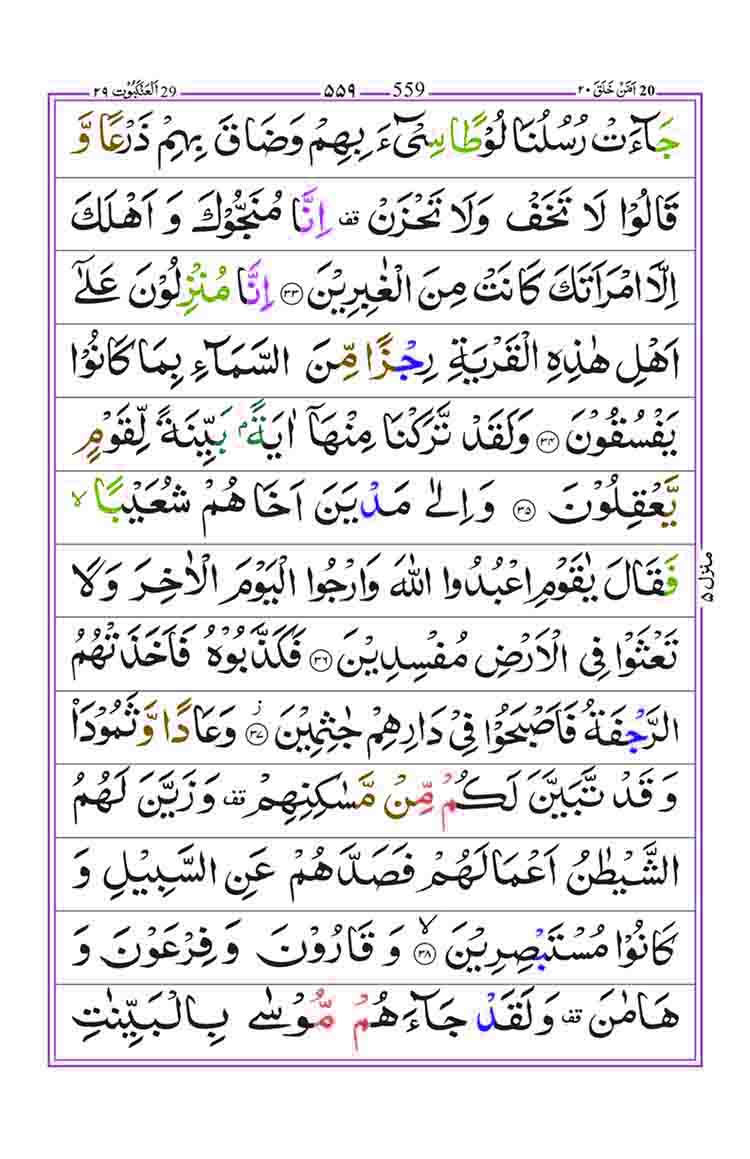 29 اَلْعَنْكَبُوْت ٢٩ ٥٥٩ 559 20 اَمَّنْ خَلَقَ ٢٠
جَآءَتْ رُسُلُنَا لُوْطًا سِیْٓءَ بِهِمْ وَضَاقَ بِهِمْ ذَرْعًا وَّ
قَالُوْا لَا تَخَفْ وَلَا تَحْزَنْ ࣞ اِنَّا مُنَجُّوْكَ وَ اَهْلَكَ
اِلَّا امْرَاَتَكَ كَانَتْ مِنَ الْغٰبِرِيْنَ ﴿۳۳﴾ اِنَّا مُنْزِلُوْنَ عَلٰٓى
اَهْلِ هٰذِهِ الْقَرْيَةِ رِجْزًا مِّنَ السَّمَآءِ بِمَا كَانُوْا
يَفْسُقُوْنَ ﴿۳۴﴾ وَلَقَدْ تَّرَكْنَا مِنْهَاۤ اٰيَةًۢ بَيِّنَةً لِّقَوْمٍ
يَّعْقِلُوْنَ ﴿۳۵﴾ وَاِلٰى مَدْيَنَ اَخَاهُمْ شُعَيْبًا ۙ
فَقَالَ يٰقَوْمِ اعْبُدُوا اللّٰهَ وَارْجُوا الْيَوْمَ الْاٰخِرَ وَلَا
تَعْثَوْا فِى الْاَرْضِ مُفْسِدِيْنَ ﴿۳۶﴾ فَكَذَّبُوْهُ فَاَخَذَتْهُمُ
الرَّجْفَةُ فَاَصْبَحُوْا فِىْ دَارِهِمْ جٰثِمِيْنَ ؗ ﴿۳۷﴾ وَعَادًا وَّثَمُوْدَا۟
وَقَدْ تَّبَيَّنَ لَكُمْ مِّنْ مَّسٰكِنِهِمْ ࣞ وَزَيَّنَ لَهُمُ
الشَّيْطٰنُ اَعْمَالَهُمْ فَصَدَّهُمْ عَنِ السَّبِيْلِ وَ
كَانُوْا مُسْتَبْصِرِيْنَ ۙ ﴿۳۸﴾ وَقَارُوْنَ وَفِرْعَوْنَ وَ
هَامٰنَ ࣞ وَلَقَدْ جَآءَهُمْ مُّوْسٰى بِالْبَيِّنٰتِ
منزل ٥